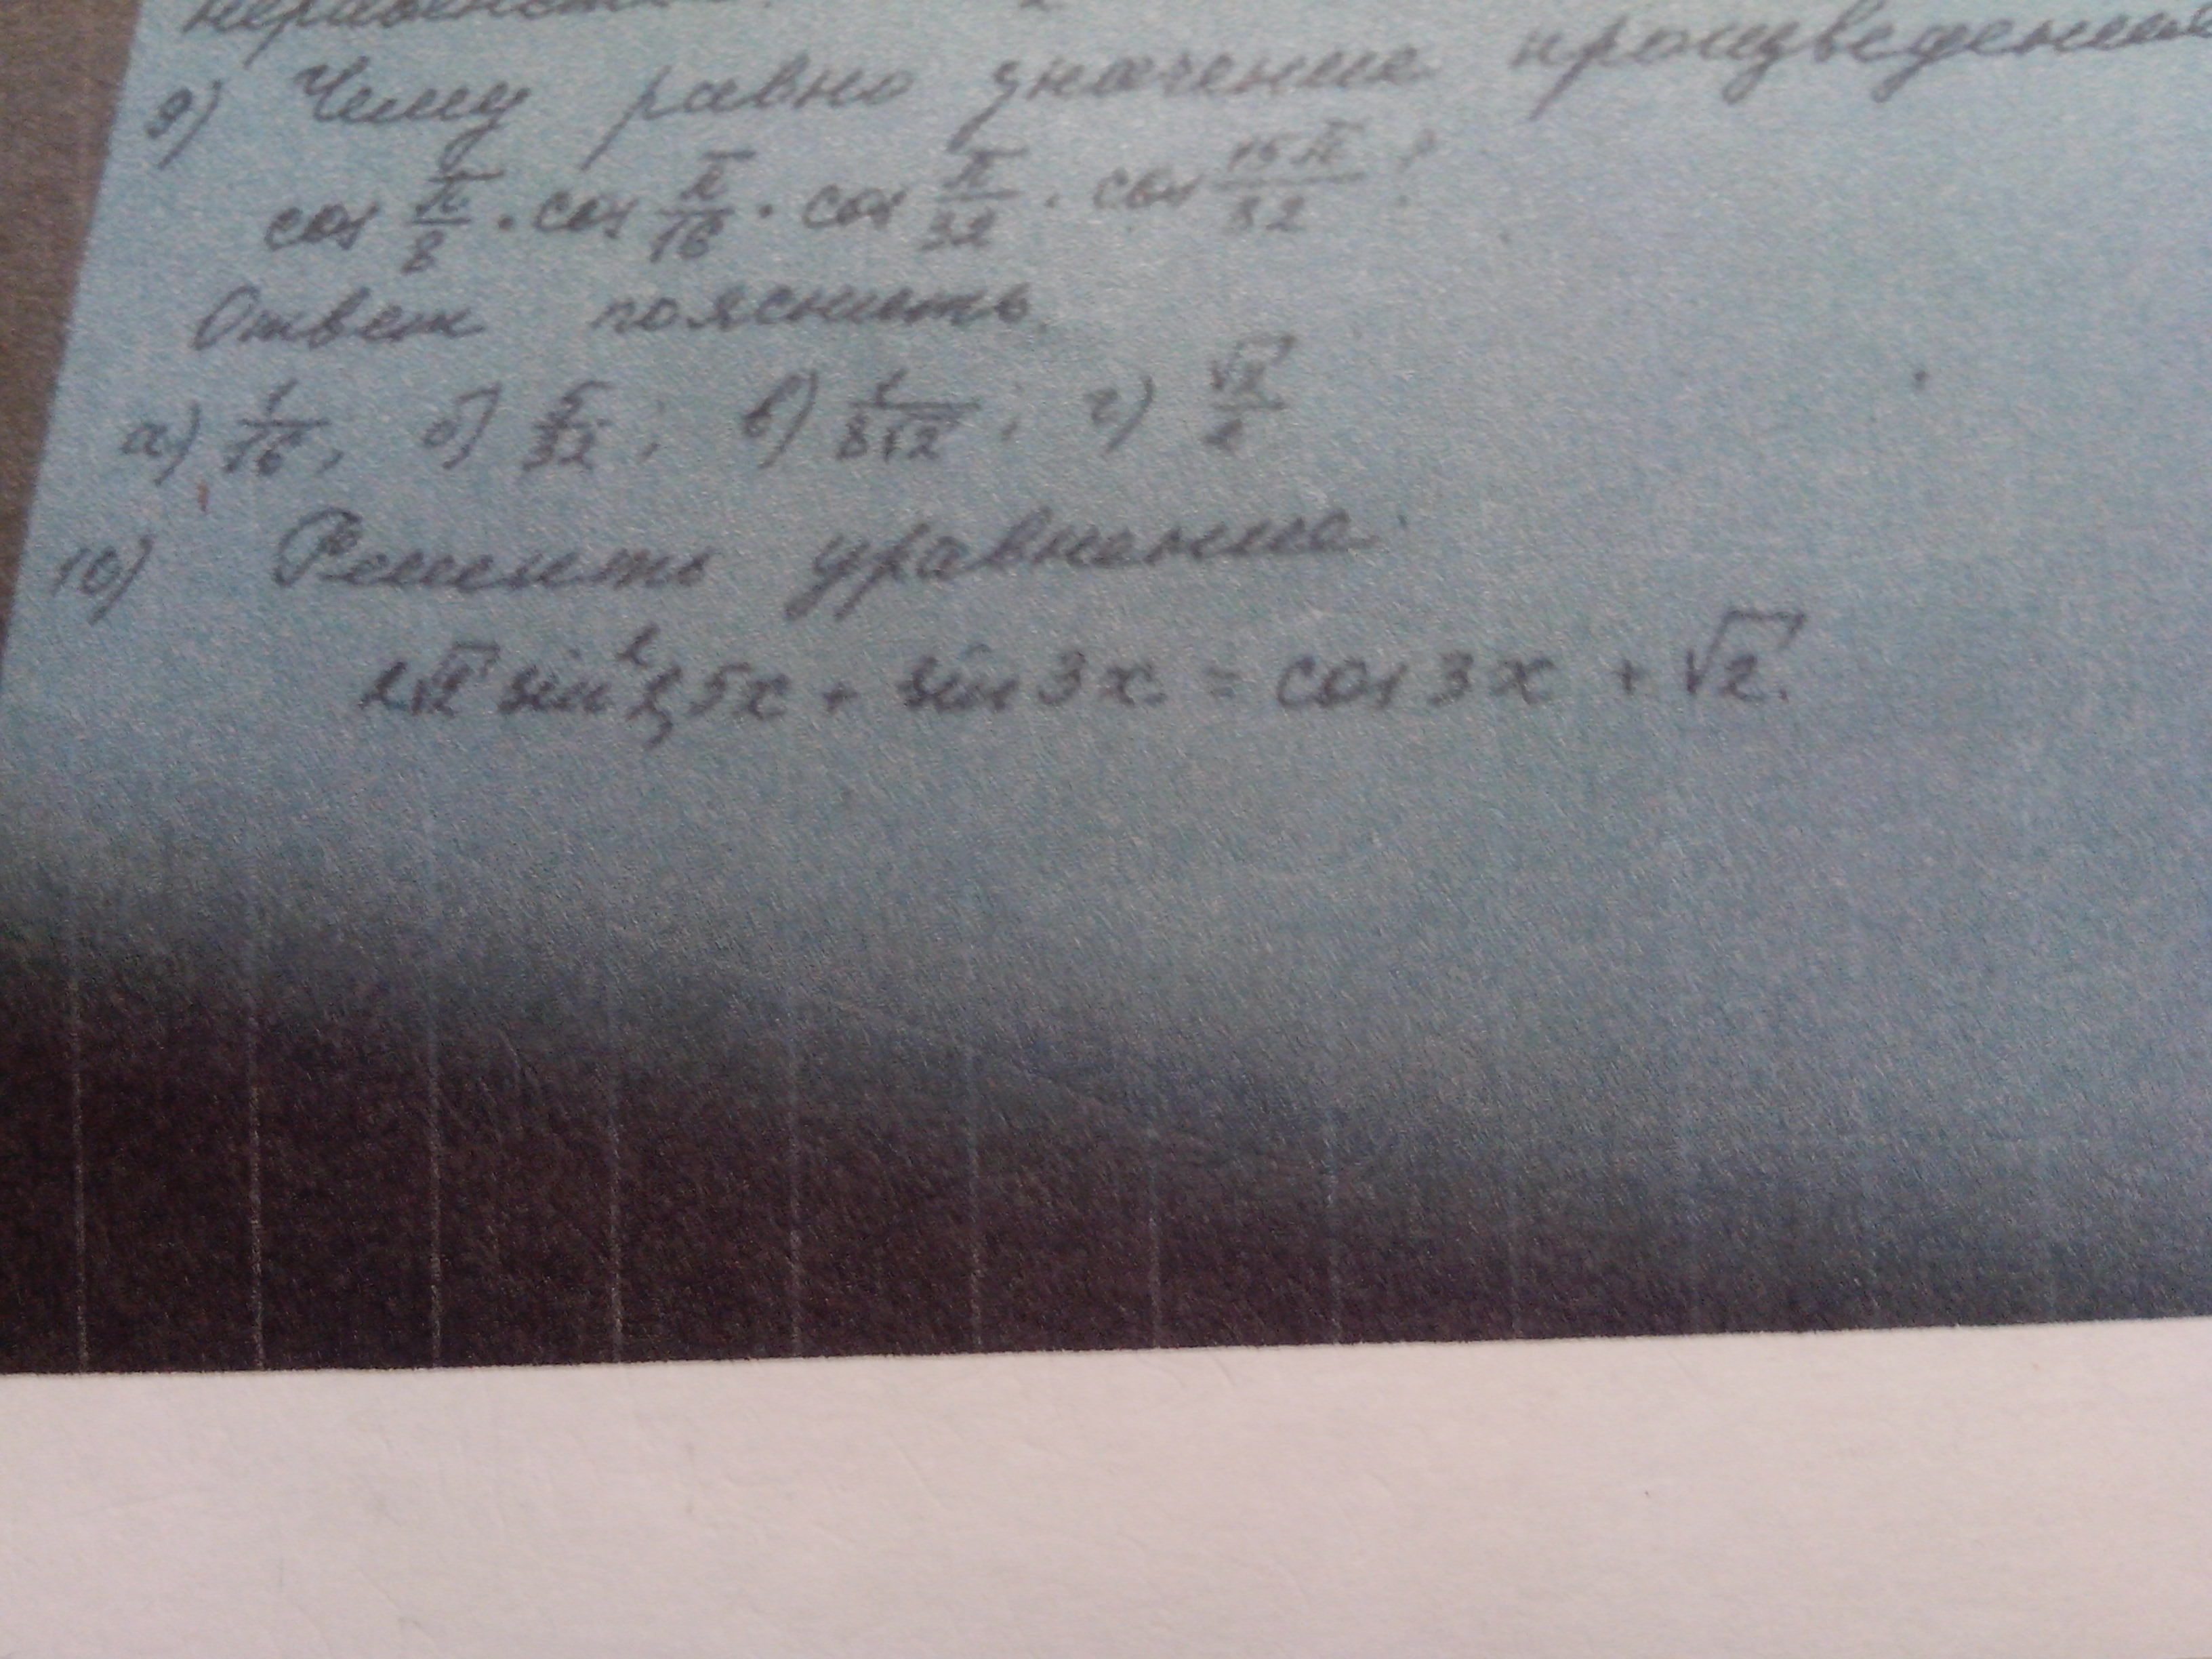 9) Чему равно значение произведения
cos π/8 · cos π/16 · cos π/32 · cos 15π/32?
Ответ пояснить.
а) 1/16; б) 5/32; в) 1/(8√2); г) √2/2
10) Решить уравнение.
2√2 sin² 2,5x + sin 3x = cos 3x + √2.